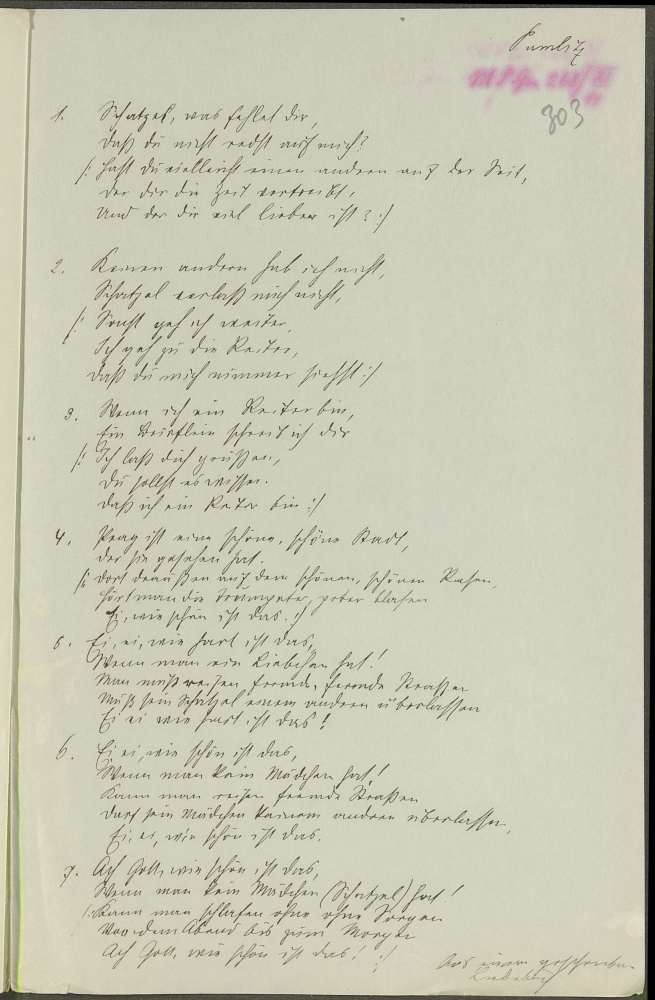 Pumlitz
303
1. Schatzel, was fehlet dir,
daß du nicht redst auf mich?
/: Hast du vielleicht einen andern auf der Seit,
der dir die Zeit vertreibt,
Und der dir viel lieber ist? :/
2. Keinen andern hab ich nicht,
Schatzel verlaß mich nicht,
/: Sonst geh ich weiter,
Ich geh zu die Reiter,
daß du mich nimmer siehst :/
3. Wenn ich ein Reiter bin,
Ein Brieflein schreib ich dir
/: Ich laß dich grüßen,
Du sollst es wissen.
daß ich ein Reiter bin :/
4. Prag ist eine schöne, schöne Stadt,
der sie gesehen hat.
/: dort draußen auf dem schönen, schönen Rasen,
hört man die Trompeter, blasen
Ei, wie schön ist das. :/
5. Ei, ei, wie hart ist das,
Wenn man ein Liebchen hat!
Man muß reisen fremde, fremde Straßen
Muß sein Schatzel einem andern überlassen
Ei ei wie hart ist das!
6. Ei ei, wie schön ist das,
Wenn man kein Mädchen hat!
Kann man reisen fremde Straßen
Darf sein Mädchen keinem andren überlassen,
Ei, ei, wie schön ist das.
7. Ach Gott, wie schön ist das,
Wenn man kein Mädchen (Schatzel) hat!
/: Kann man schlafen ohne ohne Sorgen
Von dem Abend bis zum Morgen
Ach Gott, wie schön ist das! :/
Aus einem geschrieben